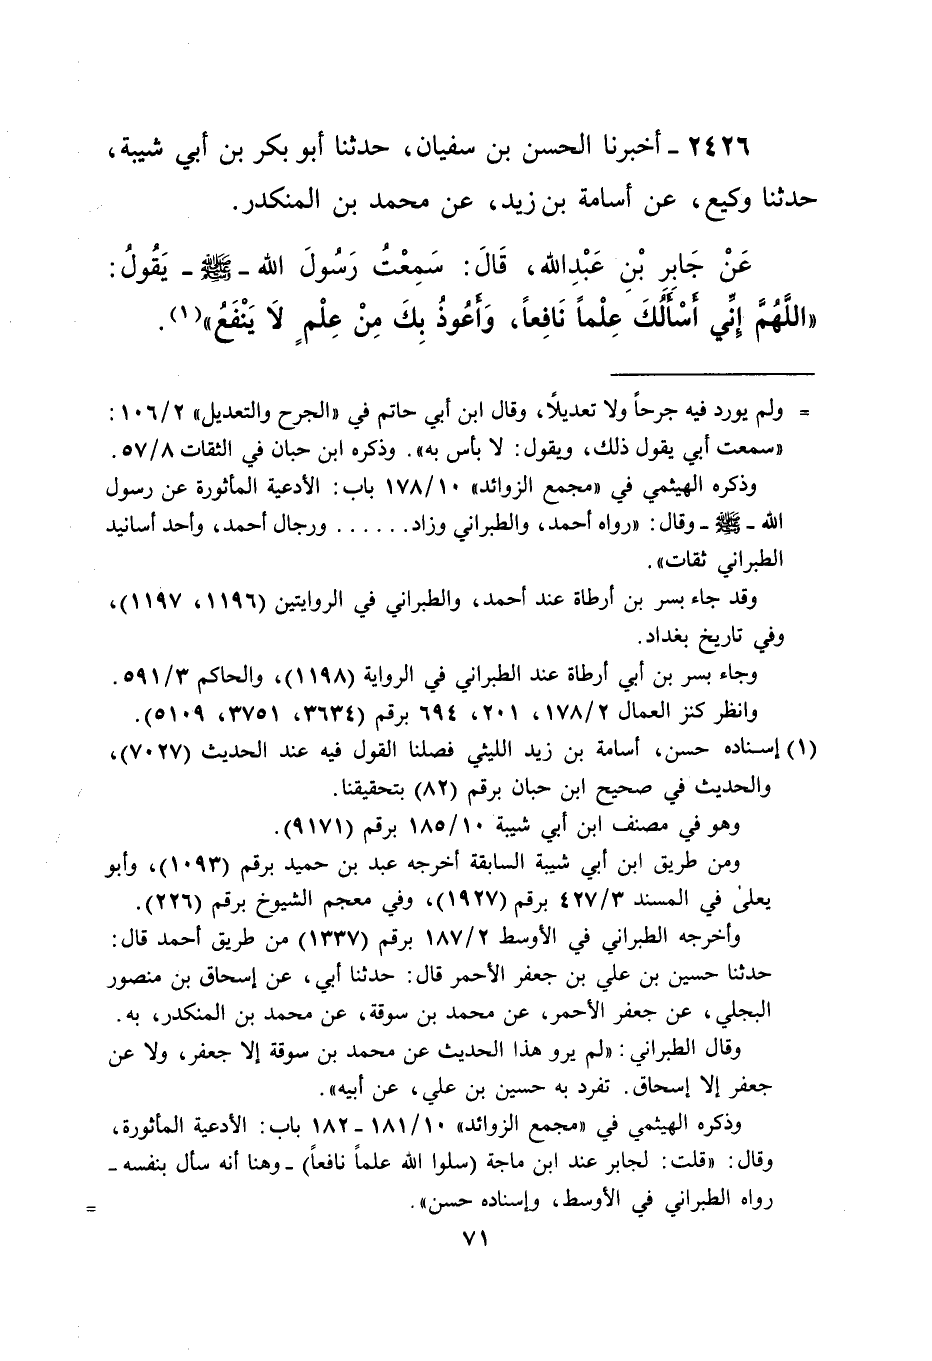 ٢٤٢٦ ـ أخبرنا الحسن بن سفيان، حدثنا أبو بكر بن أبي شيبة،
حدثنا وكيع، عن أسامة بن زيد، عن محمد بن المنكدر.
عَنْ جَابِرِ بْنِ عَبْدِالله، قَالَ: سَمِعْتُ رَسُولَ الله ـ ﷺ ـ يَقُولُ:
«اللَّهُمَّ إِنِّي أَسْأَلُكَ عِلْماً نَافِعاً، وَأَعُوذُ بِكَ مِنْ عِلْمٍ لَا يَنْفَعُ»(١).
= ولم يورد فيه جرحاً ولا تعديلًا، وقال ابن أبي حاتم في «الجرح والتعديل» ١٠٦/٢:
«سمعت أبي يقول ذلك، ويقول: لا بأس به». وذكره ابن حبان في الثقات ٥٧/٨.
وذكره الهيثمي في «مجمع الزوائد» ١٧٨/١٠ باب: الأدعية المأثورة عن رسول
الله ـ ﷺ ـ وقال: «رواه أحمد، والطبراني وزاد...... ورجال أحمد، وأحد أسانيد
الطبراني ثقات».
وقد جاء بسر بن أرطاة عند أحمد، والطبراني في الروايتين (١١٩٦، ١١٩٧)،
وفي تاريخ بغداد.
وجاء بسر بن أبي أرطاة عند الطبراني في الرواية (١١٩٨)، والحاكم ٥٩١/٣.
وانظر كنز العمال ١٧٨/٢، ٢٠١، ٦٩٤ برقم (٣٦٣٤، ٣٧٥١، ٥١٠٩).
(١) إسناده حسن، أسامة بن زيد الليثي فصلنا القول فيه عند الحديث (٧٠٢٧)،
والحديث في صحيح ابن حبان برقم (٨٢) بتحقيقنا.
وهو في مصنف ابن أبي شيبة ١٨٥/١٠ برقم (٩١٧١).
ومن طريق ابن أبي شيبة السابقة أخرجه عبد بن حميد برقم (١٠٩٣)، وأبو
يعلىٰ في المسند ٤٢٧/٣ برقم (١٩٢٧)، وفي معجم الشيوخ برقم (٢٢٦).
وأخرجه الطبراني في الأوسط ١٨٧/٢ برقم (١٣٣٧) من طريق أحمد قال:
حدثنا حسين بن علي بن جعفر الأحمر قال: حدثنا أبي، عن إسحاق بن منصور
البجلي، عن جعفر الأحمر، عن محمد بن سوقة، عن محمد بن المنكدر، به.
وقال الطبراني: «لم يرو هذا الحديث عن محمد بن سوقة إلا جعفر، ولا عن
جعفر إلا إسحاق. تفرد به حسين بن علي، عن أبيه».
وذكره الهيثمي في «مجمع الزوائد» ١٨١/١٠ ـ ١٨٢ باب: الأدعية المأثورة،
وقال: «قلت: لجابر عند ابن ماجة (سلوا الله علماً نافعاً) ـ وهنا أنه سأل بنفسه ـ
رواه الطبراني في الأوسط، وإسناده حسن». =
٧١